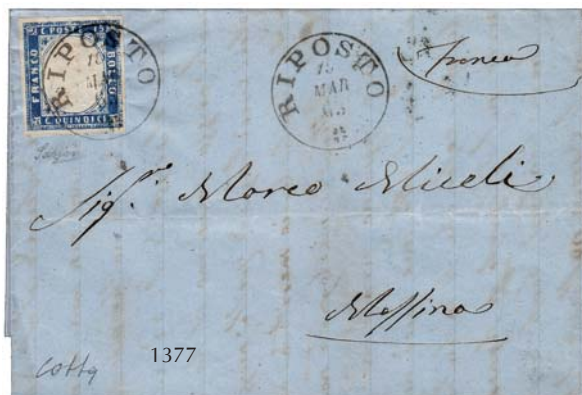 C. POSTE 15
FRANCO
BOLLO
C. QUINDICI
RIPOSTO
18
RIPOSTO
MAR
Franco
Sig.re Marco Miceli
Messina
1377